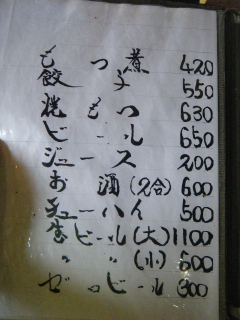 もつ煮 420
餃子 550
焼もハル 630
ビール 650
ジュース 200
お酒(2合) 600
チューハイ 500
生ビール(大) 1100
〃 〃 (小) 600
ゼロビール 300